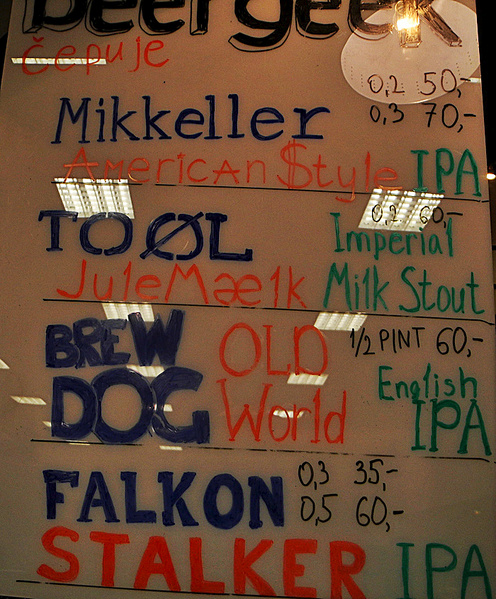 beergeek
čepuje
0,2 50,-
Mikkeller 0,3 70,-
American $tyle IPA
0,2 60,-
TO ØL Imperial
JuleMælk Milk Stout
BREW OLD 1/2 PINT 60,-
DOG World English
IPA
FALKON 0,3 35,-
0,5 60,-
STALKER IPA